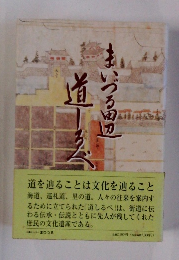 まいづる田辺
道しるべ
道を辿ることは文化を辿ること
海道、巡礼道、里の道、人々の往来を案内す
るために立てられた「道しるべ」は、街道に伝
わる伝承・伝説とともに先人が残してくれた
庶民の文化遺産である。